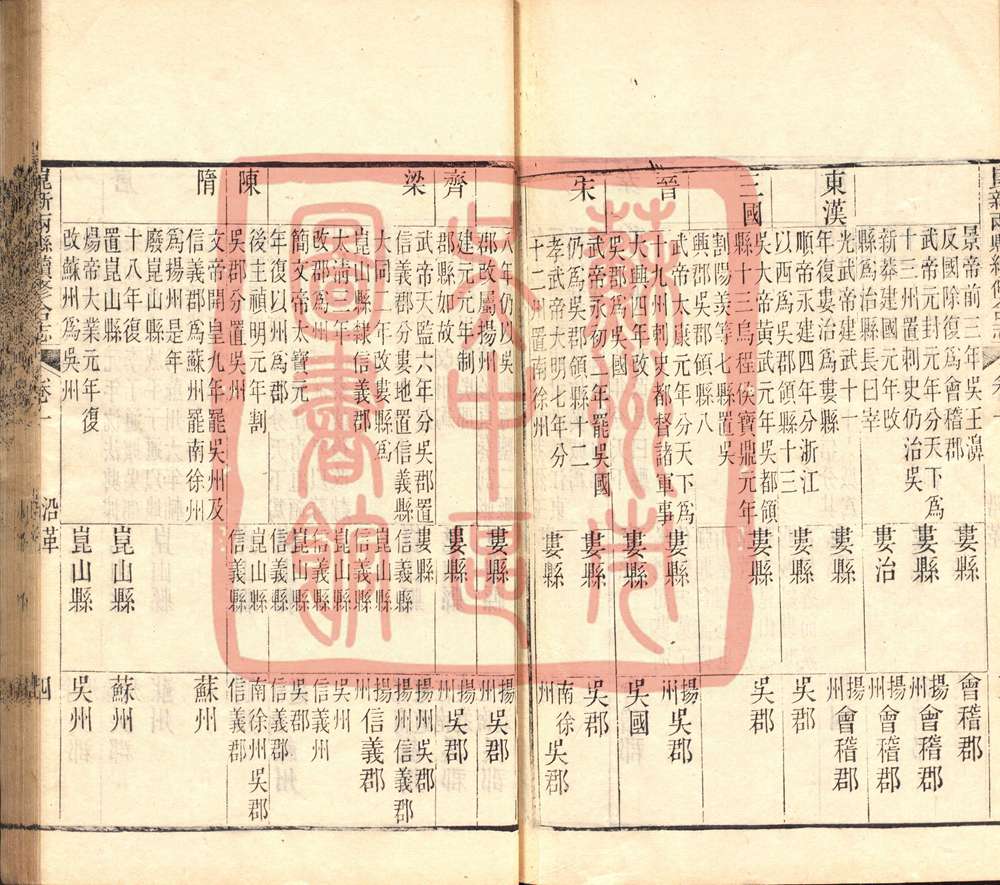 景帝前三年吳王濞
反國除復爲會稽郡
婁縣
會稽郡
武帝元封元年分天下爲
十三州置刺史仍治吳
婁縣
揚州 會稽郡
新莽建國元年改
縣爲治縣長曰宰
婁治
揚州 會稽郡
東漢
光武帝建武十一
年復婁治爲婁縣
婁縣
揚州 會稽郡
順帝永建四年分浙江
以西爲吳郡領縣十三
婁縣
吳郡
三國
吳大帝黃武元年吳都領
縣十三烏程侯寶鼎元年
割陽羨等七縣置吳
興郡吳郡領縣八
婁縣
吳郡
晉
武帝太康元年分天下爲
十九州刺史都督諸軍事
婁縣
揚州 吳郡
大興四年
吳郡爲吳國
婁縣
吳國
宋
武帝永初年罷吳國
仍爲吳郡領縣十二
婁縣
吳郡
孝武帝大明七年分
十二置南徐州
婁縣
南徐州 吳郡
八年仍以吳
郡改屬揚州
婁縣
揚州 吳郡
齊
建元元年制
郡縣如故
婁縣
揚州 吳郡
梁
武帝天監六年分吳郡置
信義郡分婁地置信義縣
婁縣
信義縣
揚州吳郡
揚州信義郡
大同年改婁縣爲
崑山縣隸信義郡
崑山縣
信義縣
揚州 信義郡
太清年
改郡爲州
崑山縣
信義縣
吳州
信義州
簡文帝大寶元
年復以州爲郡
崑山縣
信義縣
吳郡
信義郡
陳
後主禎明元年割
吳郡分置吳州
崑山縣
信義縣
南徐州吳郡
信義郡
隋
文帝開皇九年罷吳州及
信義郡爲蘇州罷南徐州
爲揚州是年
廢崑山縣
蘇州
十八年復
置崑山縣
崑山縣
蘇州
煬帝大業元年復
改蘇州爲吳州
崑山縣
吳州
崑新兩縣續修合志 卷一 沿革 四
蘇州市吳中區圖書館